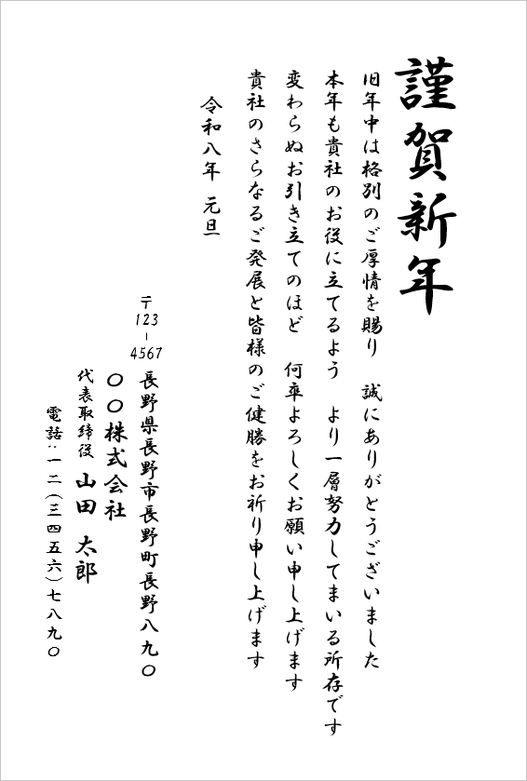 謹賀新年
旧年中は格別のご厚情を賜り　誠にありがとうございました
本年も貴社のお役に立てるよう　より一層努力してまいる所存です
変わらぬお引き立てのほど　何卒よろしくお願い申し上げます
貴社のさらなるご発展と皆様のご健勝をお祈り申し上げます
令和八年　元旦
〒123-4567
長野県長野市長野町長野八九〇
〇〇株式会社
代表取締役　山田　太郎
電話：一二(三四五六)七八九〇